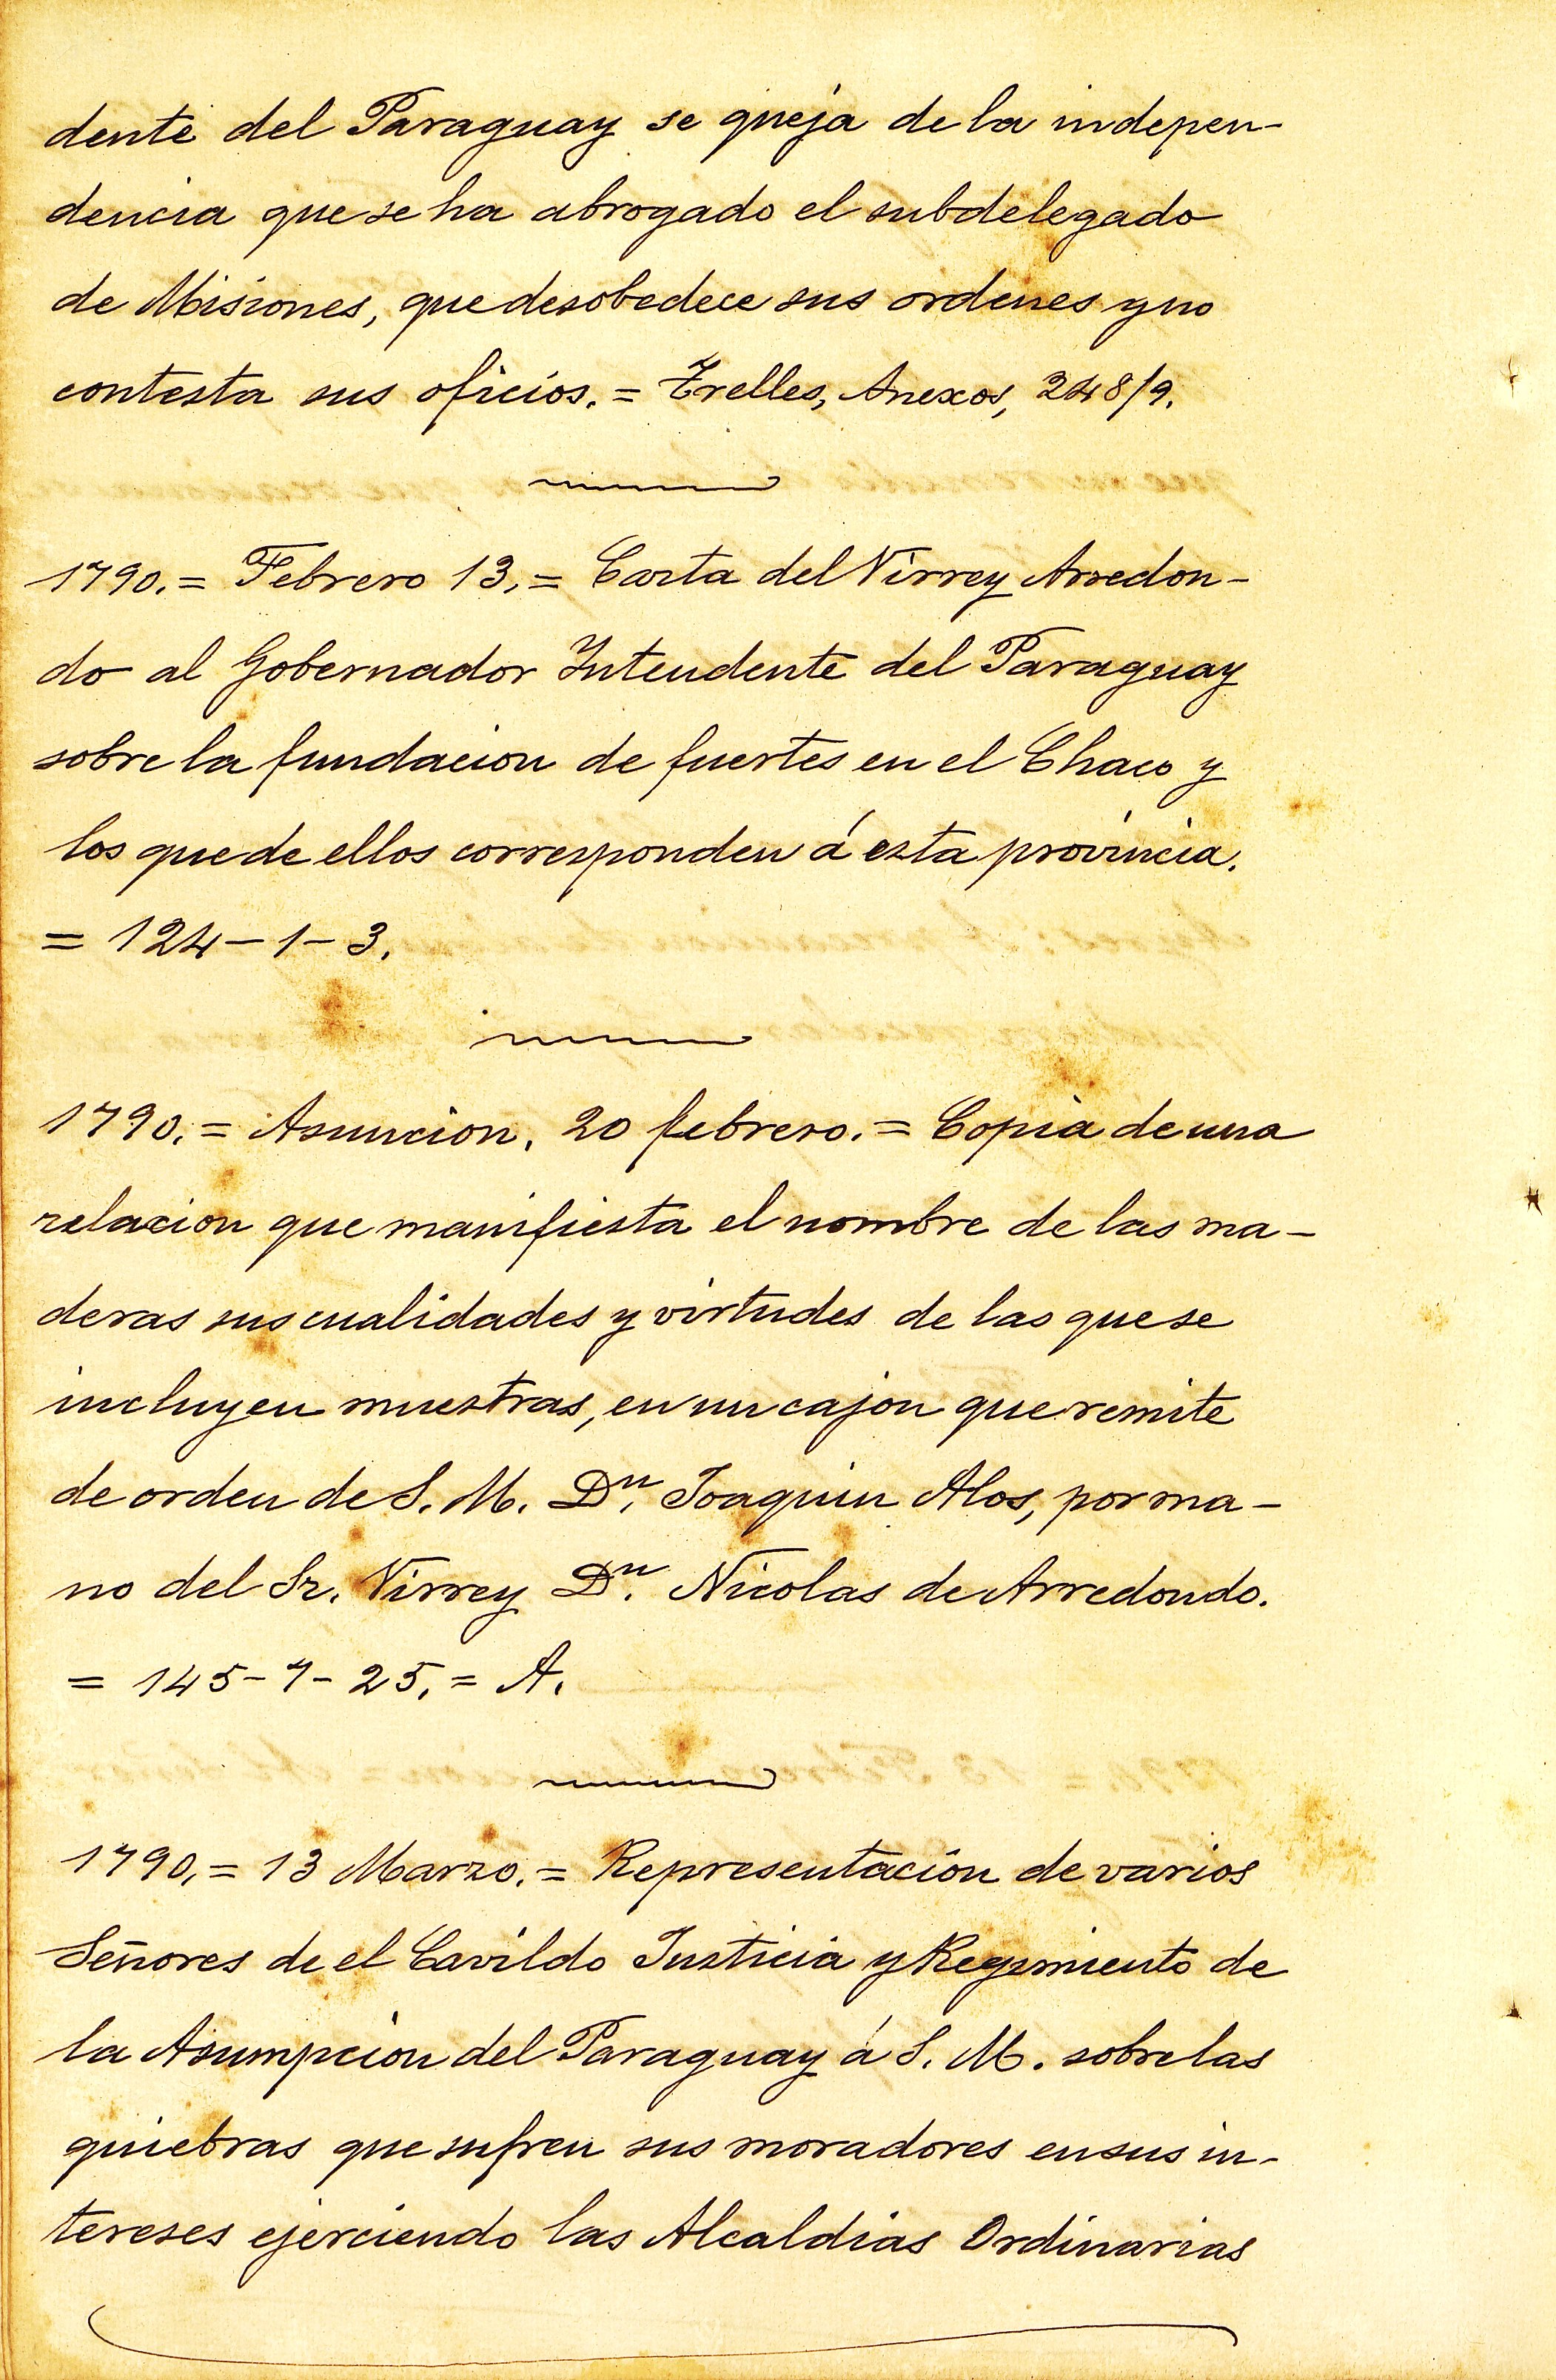 dente del Paraguay se queja de la indepen-
dencia que se ha abrogado el subdelegado
de Misiones, que desobedece sus ordenes y no
contesta sus oficios. = Trelles, Anexos, 248/9.
1790. = Febrero 13. = Carta del Virrey Arredon-
do al Gobernador Intendente del Paraguay
sobre la fundacion de fuertes en el Chaco y
los que de ellos corresponden á esta provincia.
= 124-1-3.
1790. = Asuncion, 20 febrero. = Copia de una
relacion que manifiesta el nombre de las ma-
deras sus cualidades y virtudes de las que se
incluyen muestras, en un cajon que remite
de orden de S. M. Dn. Joaquin Alos, por ma-
no del Sr. Virrey Dn. Nicolas de Arredondo.
= 145-7-25. = A.
1790. = 13 Marzo. = Representacion de varios
Señores de el Cavildo Justicia y Regimiento de
la Asumpcion del Paraguay á S. M. sobre las
quiebras que sufren sus moradores en sus in-
tereses ejerciendo las Alcaldias Ordinarias